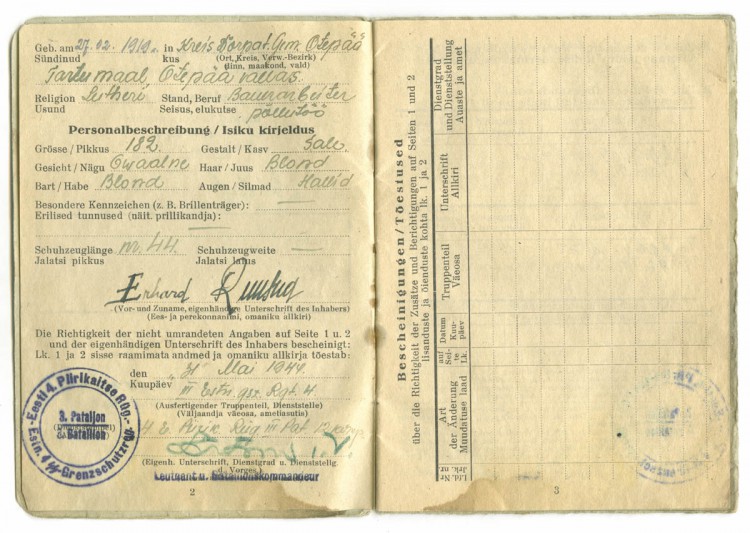 Geb. am 27.02.1919. in Kreis Dorpat. Gem. Otepää
Sündinud kus (Ort, Kreis, Verw.-Bezirk)
(linn, maakond, vald)
Tartumaal, Otepää vallas.
Religion Lutheri Stand, Beruf Bauerarbeiter
Usund Seisus, elukutse põllutöö
Personalbeschreibung / Isiku kirjeldus
Grösse / Pikkus 182 Gestalt / Kasv Sale
Gesicht / Nägu Ovaalne Haar / Juus Blond
Bart / Habe Blond Augen / Silmad Hallid
Besondere Kennzeichen (z. B. Brillenträger): —
Erilised tunnused (näit. prillikandja): —
Schuhzeuglänge nr. 44. Schuhzeugweite —
Jalatsi pikkus Jalatsi laius
Erhard
(Vor- und Zuname, eigenhändige Unterschrift des Inhabers)
(Ees- ja perekonnanimi, omaniku allkiri)
Die Richtigkeit der nicht umrandeten Angaben auf Seite 1 u. 2
und der eigenhändigen Unterschrift des Inhabers bescheinigt:
Lk. 1 ja 2 sisse raamimata andmed ja omaniku allkirja tõestab:
den "31" Mai 1944.
Kuupäev
III Estn. gsz. Rgt. 4
(Ausfertigender Truppenteil, Dienststelle)
(Väljaandja väeosa, ametiasutus)
(Eigenh. Unterschrift, Dienstgrad u. Dienststellg.
d. Vorges.)
Leutnant u. Bataillonskommandeur
Eesti 4. Piirikaitse Rüg.
3. Pataljon
Bataillon
Estn. 4 Grenzschutzreg.
2
Bescheinigungen / Tõestused
über die Richtigkeit der Zusätze und Berichtigungen auf Seiten 1 und 2
lisanduste ja õienduste kohta lk. 1 ja 2
Lfd. Nr
Jrk. nr
Art
der Änderung
Muudatuse laad
auf
Sei-
te
Lk.
Datum
Kuu-
päev
Truppenteil
Väeosa
Unterschrift
Allkiri
Dienstgrad
und Dienststellung
Auaste ja amet
3